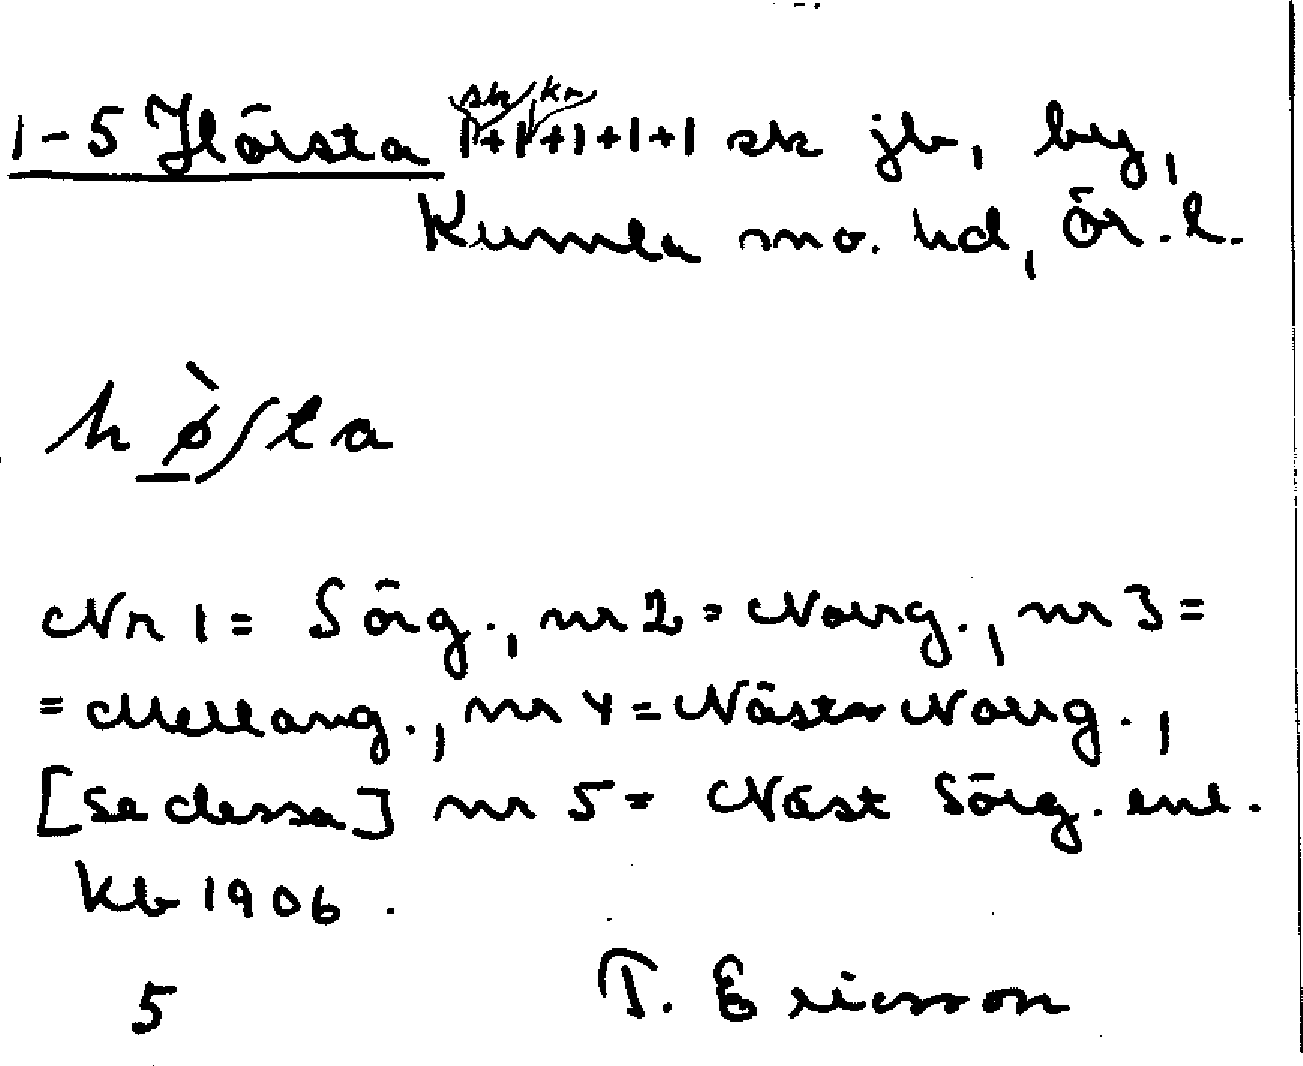 sk kr
1-5 Hörsta 1+1+1+1+1 sk jb, by,
Kumla sn o. hd, Ör. l.
hø̀ʃta
Nr 1 = Sörg., nr 2 = Norrg., nr 3 =
= Mellang., nr 4 = Västra Norrg.,
[se dessa] nr 5 = Väst Sörg. enl.
Kb 1906.
5 T. Ericsson